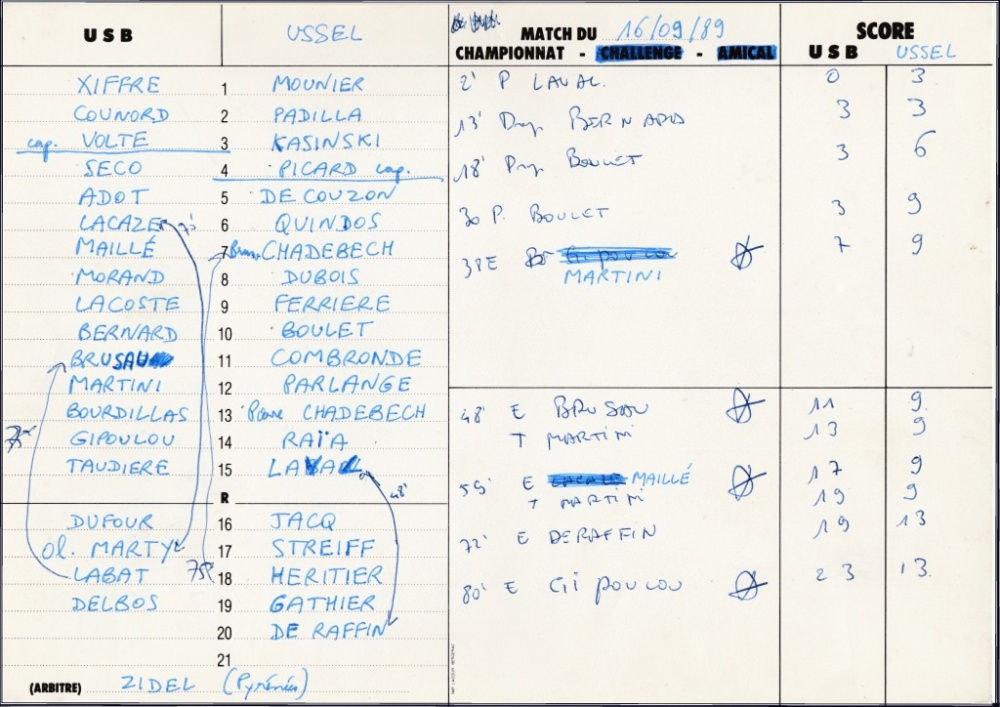 USB USSEL
XIFFRE 1 MOUNIER
COUNORD 2 PADILLA
cap. VOLTE 3 KASINSKI
SECO 4 PICARD cap.
ADOT 5 DE COUZON
LACAZE 6 QUINDOS
MAILLÉ 7 CHADEBECH
MORAND 8 DUBOIS
LACOSTE 9 FERRIERE
BERNARD 10 BOULET
BRUSAU 11 COMBRONDE
MARTINI 12 PARLANGE
BOURDILLAS 13 Pierre CHADEBECH
GIPOULOU 14 RAÏA
TAUDIERE 15 LAVAL
48'
R
DUFOUR 16 JACQ
Ol. MARTY 17 STREIFF
LABAT 75' 18 HERITIER
DELBOS 19 GATHIER
20 DE RAFFIN
21
(ARBITRE) ZIDEL (Pyrénées)
MATCH DU 16/09/89 SCORE
CHAMPIONNAT - CHALLENGE - AMICAL USB USSEL
2' P LAVAL. 0 3
13' Drop BERNARD 3 3
18' Drop BOULET 3 6
30 P. BOULET 3 9
38 E GIPOULOU 7 9
MARTINI
48' E BRUSAU 11 9
T MARTINI 13 9
55' E LACAZE MAILLÉ 17 9
T MARTINI 19 9
72' E DERAFFIN 19 13
80' E GIPOULOU 23 13